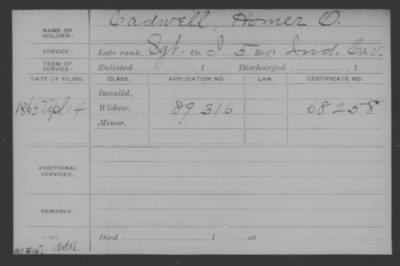 Cadwell, Homer O.
NAME OF SOLDIER:
SERVICE: Late rank, Sgt. Co. I, 5 Reg't Ind. Cav.
TERM OF SERVICE: Enlisted , 1 Discharged , 1
DATE OF FILING. CLASS. APPLICATION NO. LAW. CERTIFICATE NO.
Invalid,
1865 Apl 14 Widow, 89316 68258
Minor,
ADDITIONAL SERVICES:
REMARKS:
Died , 1 , at